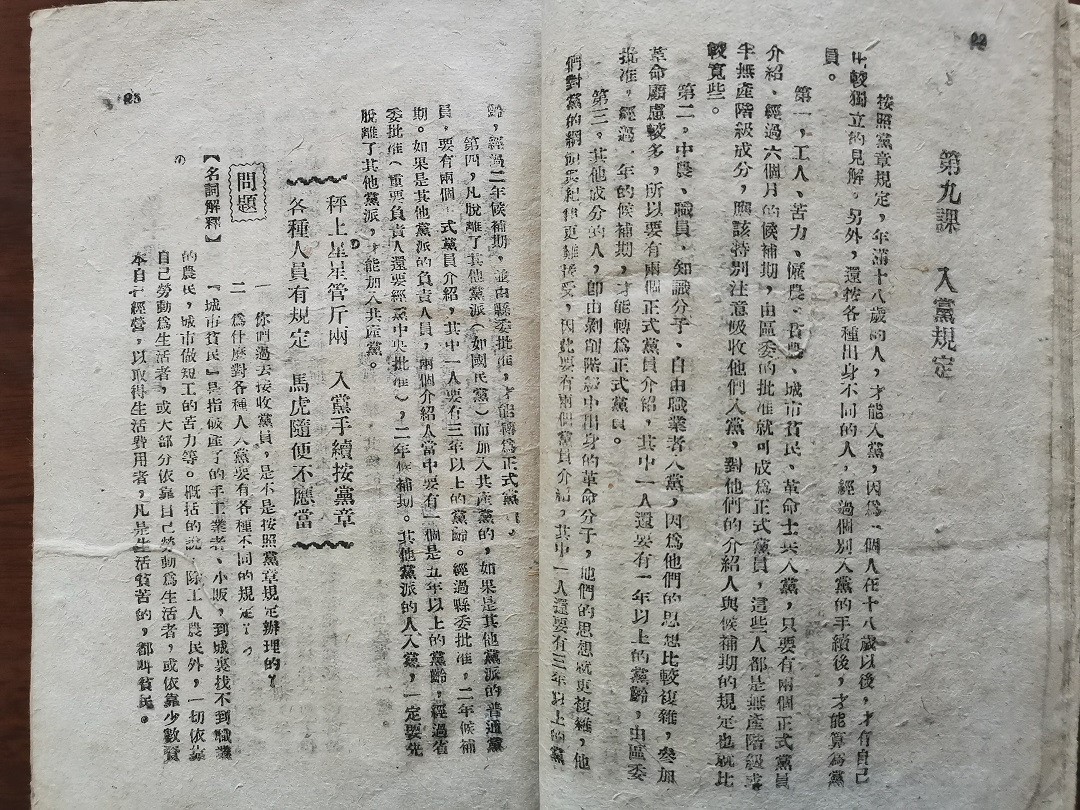 第九課　入黨規定
按照黨章規定，年滿十八歲的人，才能入黨，因爲一個人在十八歲以後，才有自己
比較獨立的見解。另外，還按各種出身不同的人，經過個別入黨的手續後，才能算爲黨
員。
第一，工人、苦力、僱農、貧農、城市貧民、革命士兵入黨，只要有兩個正式黨員
介紹，經過六個月的候補期，由區委的批准就可成爲正式黨員，這些人都是無產階級或
半無產階級成分，應該特別注意吸收他們入黨，對他們的介紹人與候補期的規定也就比
較寬些。
第二，中農、職員、知識分子、自由職業者入黨，因爲他們的思想比較複雜，參加
革命顧慮較多，所以要有兩個正式黨員介紹，其中一人還要有一年以上的黨齡，由區委
批准，經過一年的候補期，才能轉爲正式黨員。
第三，其他成分的人，即由剝削階級中出身的革命分子，他們的思想就更複雜，他
們對黨的綱領與紀律更難接受，因此要有兩個黨員介紹，其中一人還要有三年以上的黨
齡，經過二年候補期，並由縣委批准，才能轉爲正式黨員。
第四，凡脫離了其他黨派（如國民黨）而加入共產黨的，如果是其他黨派的普通黨
員，要有兩個正式黨員介紹，其中一人要有三年以上的黨齡。經過縣委批准，二年候補
期。如果是其他黨派的負責人員，兩個介紹人當中要有一個是五年以上的黨齡，經過省
委批准（重要負責人還要經黨中央批准），二年候補期。其他黨派的人入黨，一定要先
脫離了其他黨派，才能加入共產黨。
秤上星星管斤兩　入黨手續按黨章
各種人員有規定　馬虎隨便不應當
問題
一　你們過去接收黨員，是不是按照黨章規定辦理的？
二　爲什麼對各種人入黨要有各種不同的規定？
【名詞解釋】　『城市貧民』是指破產了的手工業者、小販，到城裏找不到職業
的農民，城市做短工的苦力等。概括的說，除工人農民外，一切依靠
自己勞動爲生活者，或大部分依靠自己勞動爲生活者，或依靠少數資
本自己經營，以取得生活費用者，凡是生活貧苦的，都叫貧民。